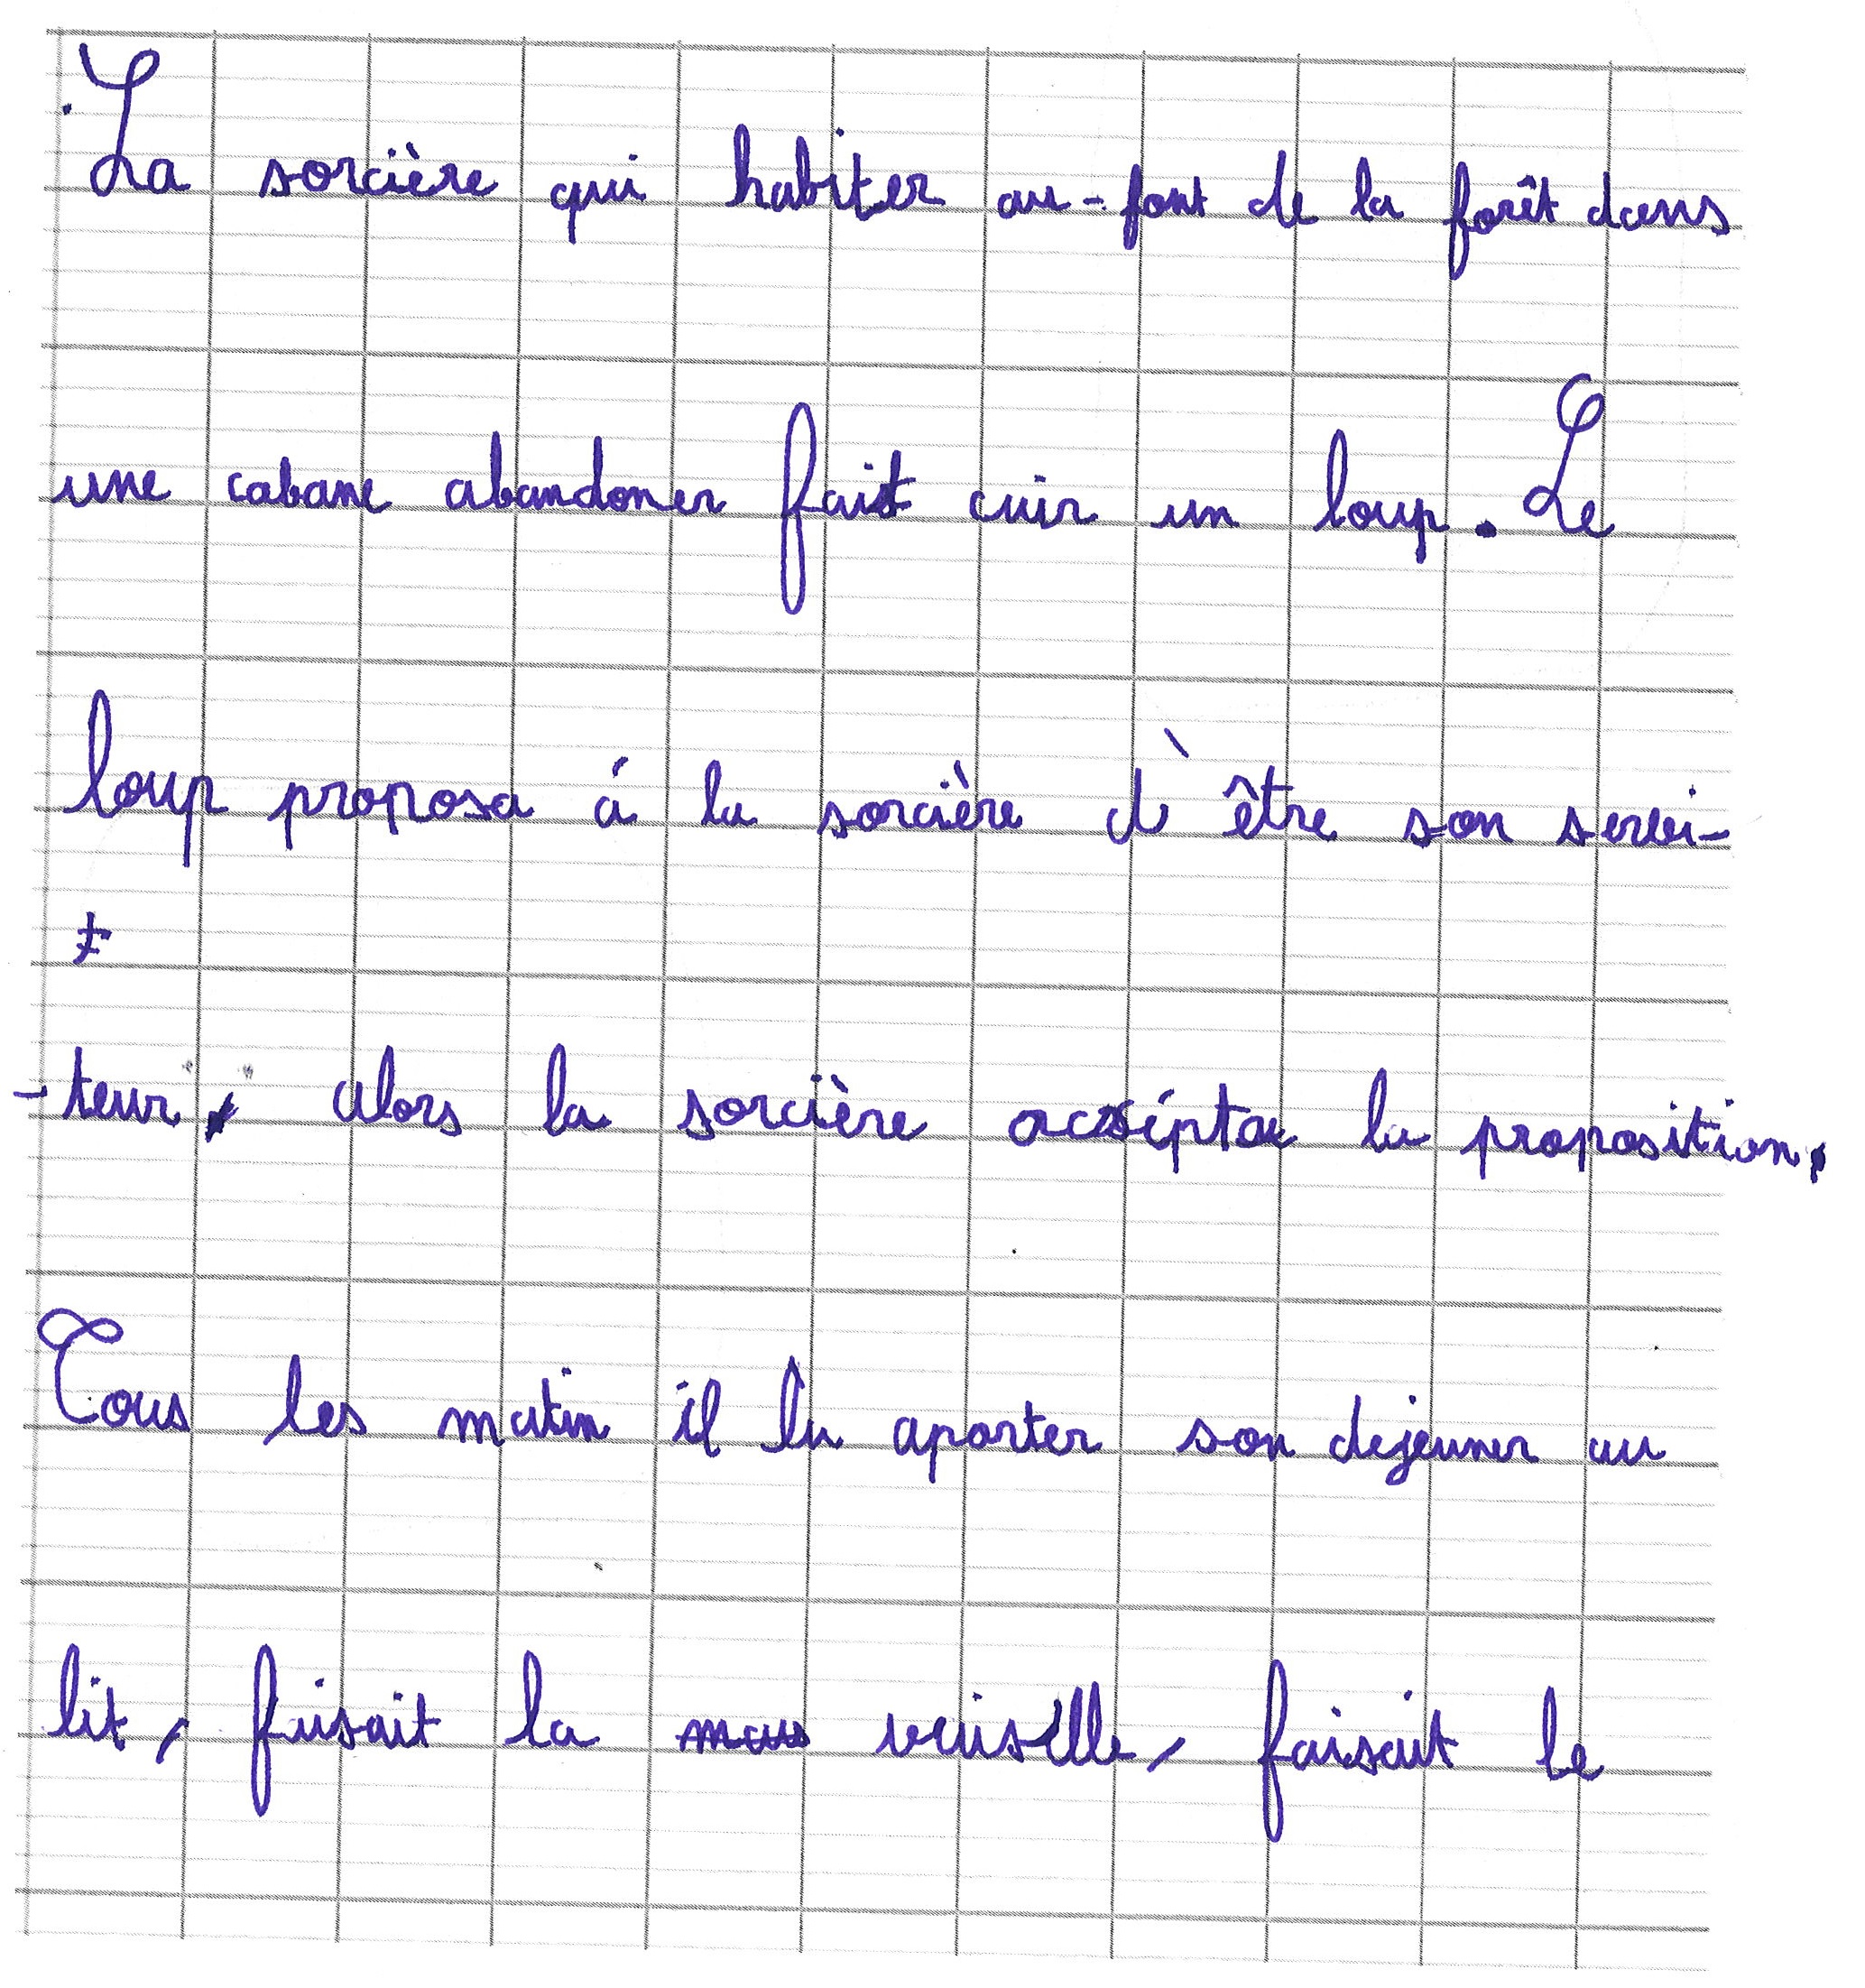 La sorcière qui habiter au-font de la forêt dans
une cabane abandoner fait cuir un loup. Le
loup proposa á la sorcière d'être son servi-
t
-teur, alors la sorcière accépta la proposition.
Tous les matin il lu aporter son dejeuner au
lit, faisait la mau vaiselle, faisait le